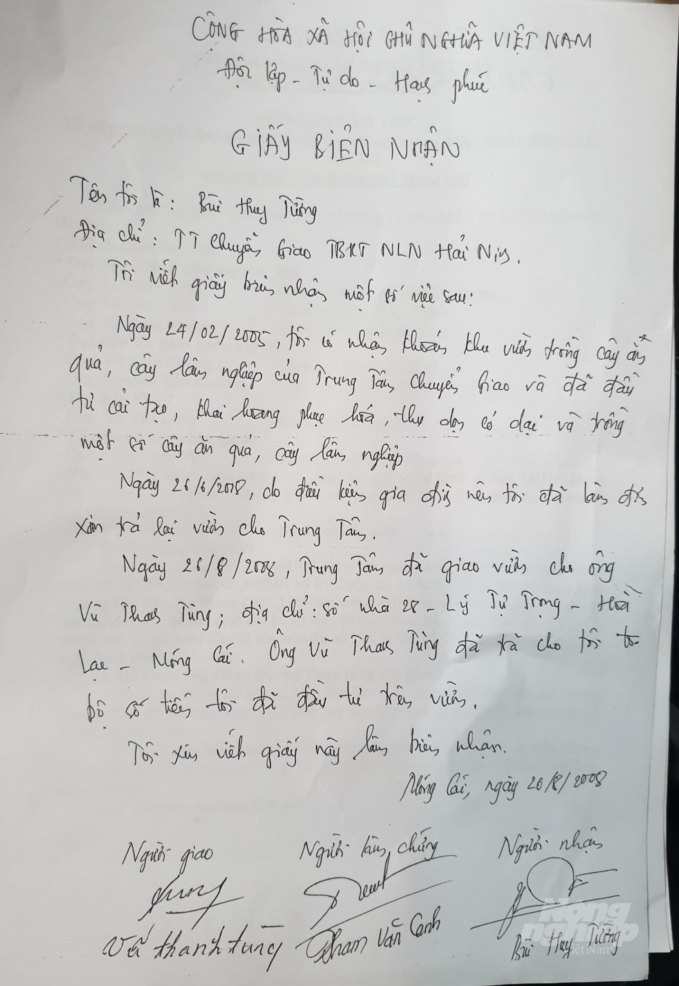 CỘNG HÒA XÃ HỘI CHỦ NGHĨA VIỆT NAM
Độc lập - Tự do - Hạnh phúc
GIẤY BIÊN NHẬN
Tên tôi là: Bùi Huy Tưởng
Địa chỉ: TT Chuyển Giao TBKT NLN Hải Ninh.
Tôi viết giấy biên nhận một số việc sau:
Ngày 24/02/2005, tôi có nhận khoán khu vườn trồng cây ăn
quả, cây lâm nghiệp của Trung Tâm Chuyển Giao và đã đầu
tư cải tạo, khai hoang phục hóa, thu dọn cỏ dại và trồng
một số cây ăn quả, cây lâm nghiệp
Ngày 26/6/2008, do điều kiện gia đình nên tôi đã làm đơn
xin trả lại vườn cho Trung Tâm.
Ngày 26/8/2008, Trung Tâm đã giao vườn cho ông
Vũ Thanh Tùng; địa chỉ: số nhà 28 - Lý Tự Trọng - Hoà
Lạc - Móng Cái. Ông Vũ Thanh Tùng đã trả cho tôi
bộ số tiền tôi đã đầu tư trên vườn.
Tôi xin viết giấy này làm biên nhận.
Móng Cái, ngày 26/8/2008
Người giao Người làm chứng Người nhận
Vũ thanh tùng Phạm Văn Canh Bùi Huy Tưởng
Nông nghiệp
Việt Nam